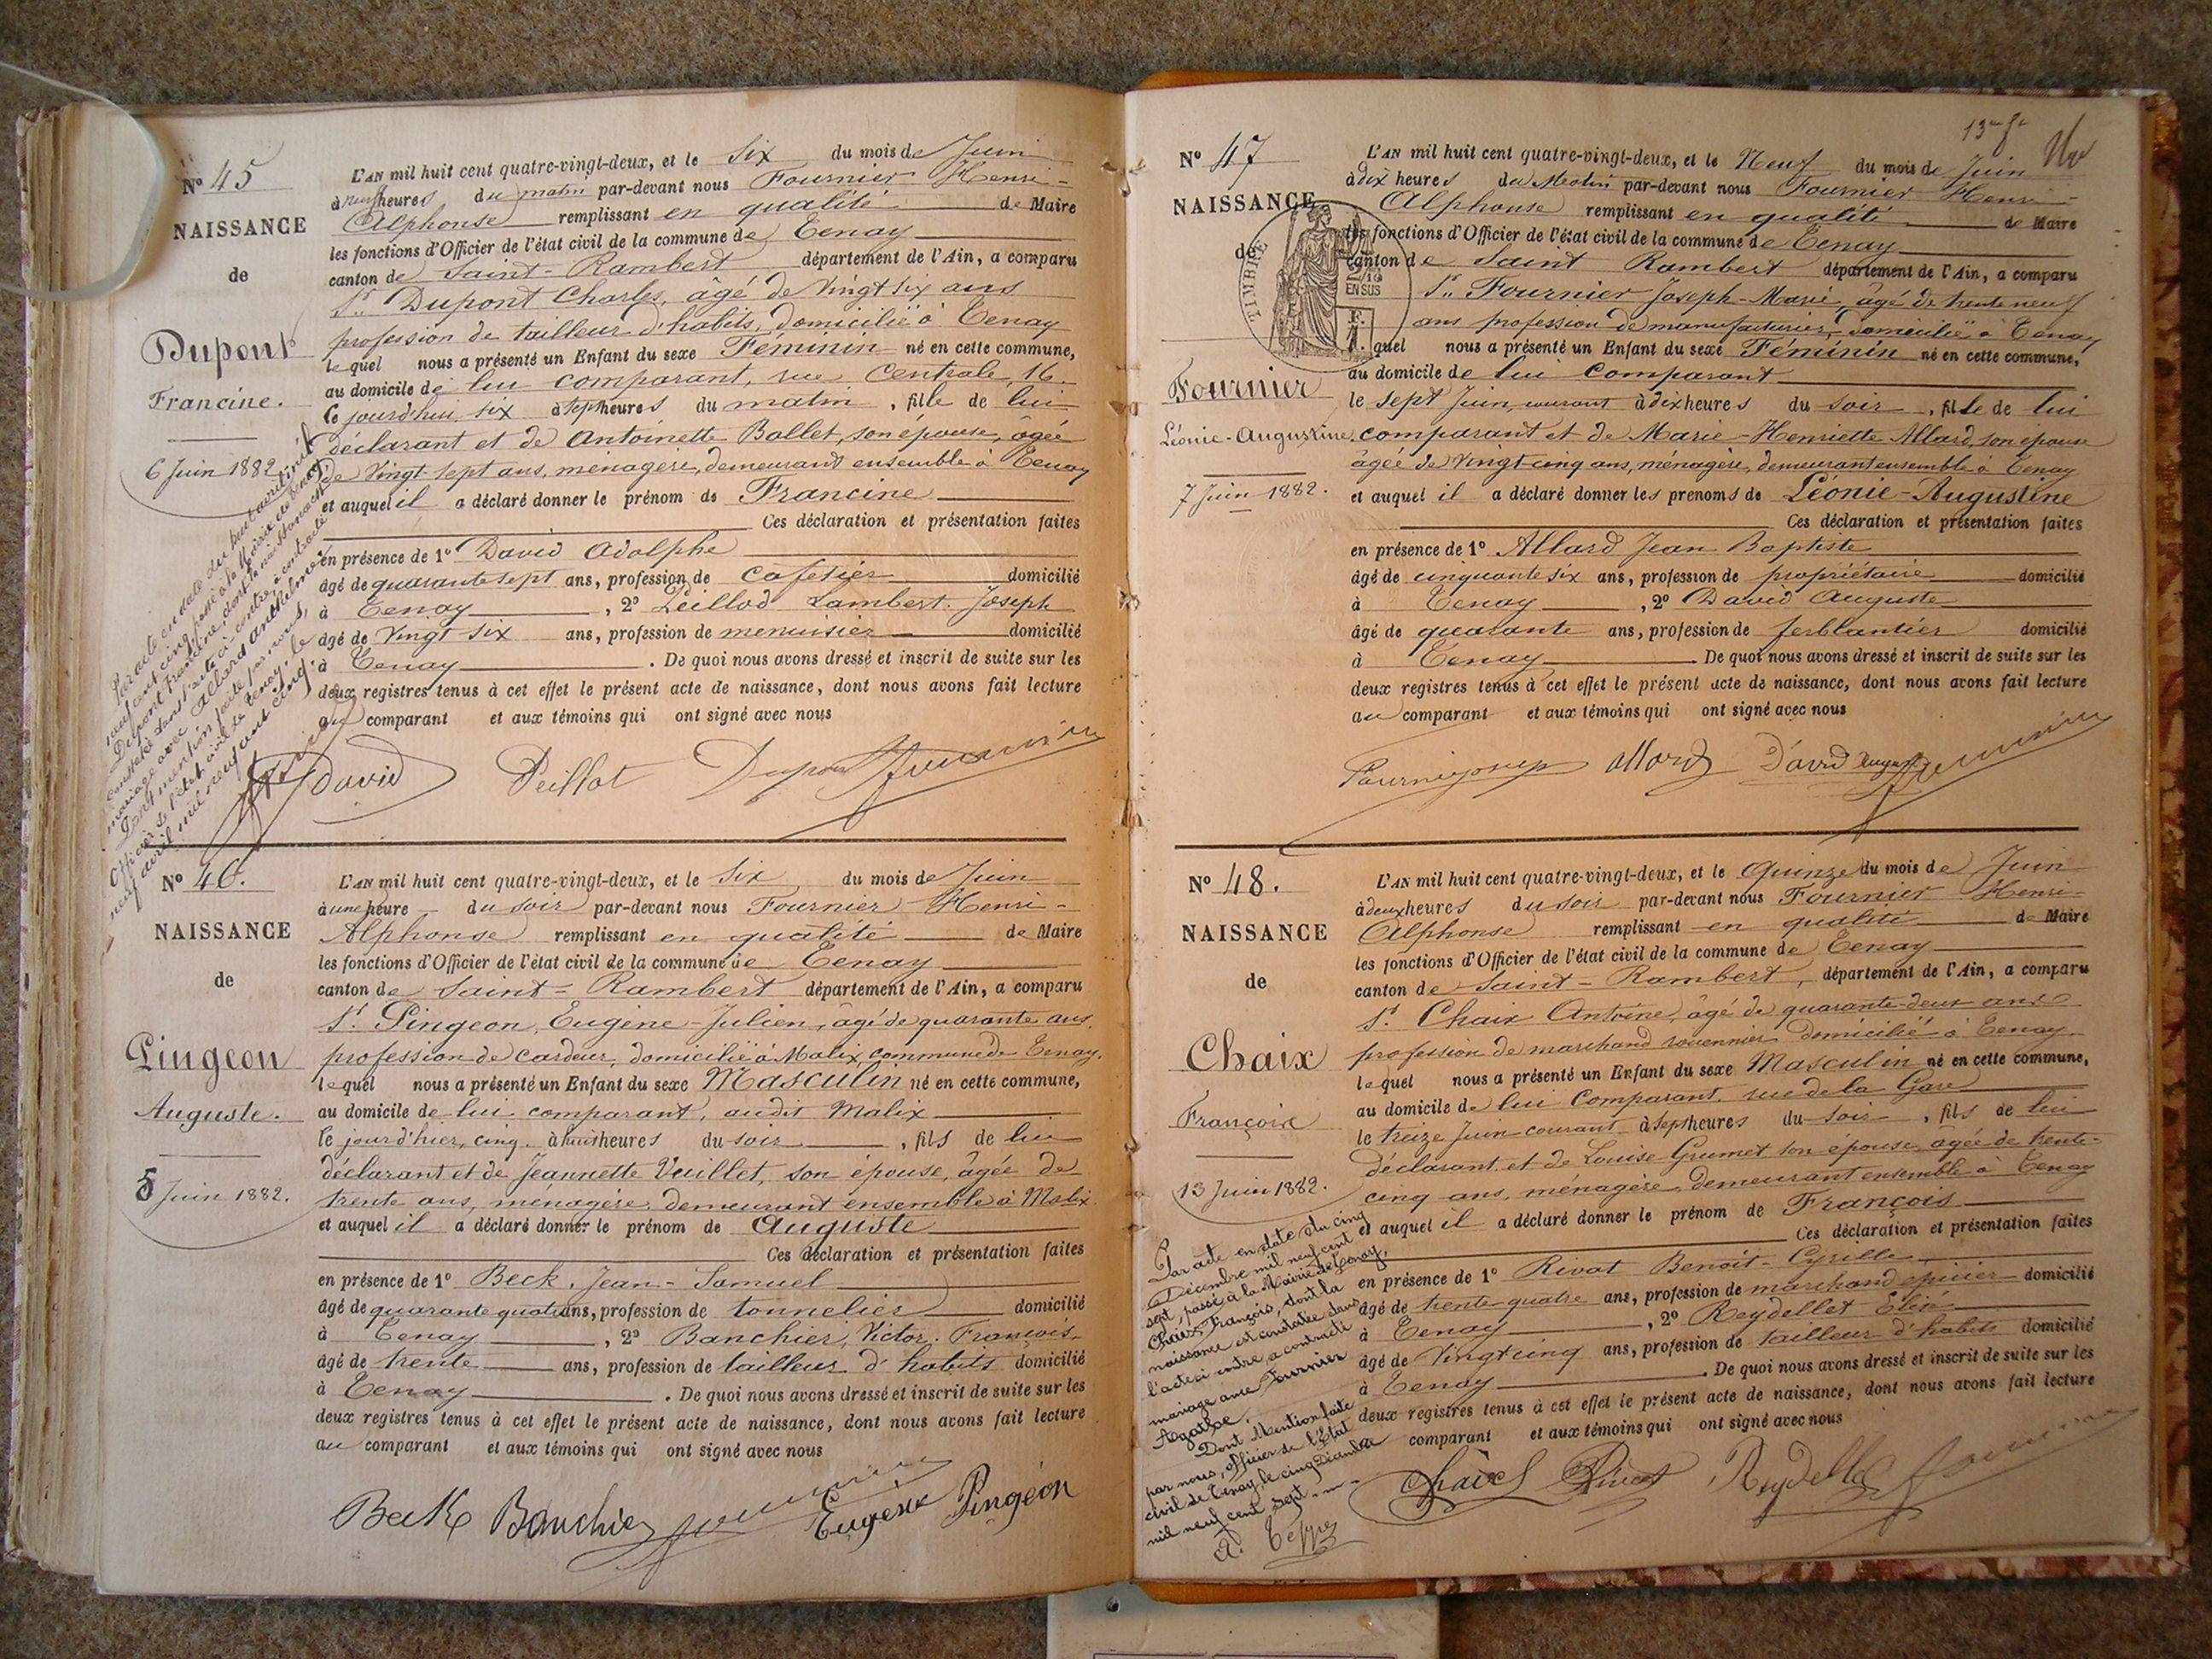 Nº 45
NAISSANCE
de
Dupont
Francine.
6 Juin 1882.
L'AN mil huit cent quatre-vingt-deux, et le Six du mois de Juin
à neuf heures du matin par-devant nous Fournier Henri-
Alphonse remplissant en qualité de Maire
les fonctions d'Officier de l'état civil de la commune de Tenay
canton de Saint-Rambert département de l'Ain, a comparu
Sr Dupont Charles, âgé de Vingt six ans
profession de tailleur d'habits, domicilié à Tenay
lequel nous a présenté un Enfant du sexe Féminin né en cette commune,
au domicile de lui comparant, rue Centrale, 16.
Ce jourd'hui six à sept heures du matin, fille de lui
déclarant et de Antoinette Bollet, son épouse, âgée
de Vingt-sept ans, ménagère, demeurant ensemble à Tenay
et auquel il a déclaré donner le prénom de Francine
Ces déclaration et présentation faites
en présence de 1º David Adolphe
âgé de quarante sept ans, profession de cafetier domicilié
à Tenay, 2º Peillod Lambert Joseph
âgé de Vingt six ans, profession de menuisier domicilié
à Tenay. De quoi nous avons dressé et inscrit de suite sur les
deux registres tenus à cet effet le présent acte de naissance, dont nous avons fait lecture
au comparant et aux témoins qui ont signé avec nous
Par acte en date du huit avril mil
neuf cent cinq, passé à la Mairie de Tenay
Dupont Francine dont la naissance est
constatée dans l'acte ci-contre, a contracté
mariage avec Allard Anthelme
Dont mention faite par nous,
Officier de l'état civil de Tenay, le
neuf avril mil neuf cent cinq.
David Peillot Dupont Fournier
Nº 46.
NAISSANCE
de
Pingeon
Auguste.
5 Juin 1882.
L'AN mil huit cent quatre-vingt-deux, et le Six du mois de Juin
à une heure du soir par-devant nous Fournier Henri-
Alphonse remplissant en qualité de Maire
les fonctions d'Officier de l'état civil de la commune de Tenay
canton de Saint-Rambert département de l'Ain, a comparu
Sr. Pingeon, Eugène-Julien, âgé de quarante ans,
profession de cardeur, domicilié à Malix, commune de Tenay.
lequel nous a présenté un Enfant du sexe Masculin né en cette commune,
au domicile de lui comparant, audit Malix
le jour d'hier, cinq, à huit heures du soir, fils de lui
déclarant et de Jeannette Vuillet, son épouse, âgée de
trente ans, ménagère, demeurant ensemble à Malix
et auquel il a déclaré donner le prénom de Auguste
Ces déclaration et présentation faites
en présence de 1º Beck, Jean-Samuel
âgé de quarante quatre ans, profession de tonnelier domicilié
à Tenay, 2º Banchier, Victor-François
âgé de trente ans, profession de tailleur d'habits domicilié
à Tenay. De quoi nous avons dressé et inscrit de suite sur les
deux registres tenus à cet effet le présent acte de naissance, dont nous avons fait lecture
au comparant et aux témoins qui ont signé avec nous
Beck Banchier Fournier Eugène Pingeon
13me ft
Nº 47
NAISSANCE
de
TIMBRE
2/10
EN SUS
Fournier
Léonie-Augustine.
7 Juin 1882.
L'AN mil huit cent quatre-vingt-deux, et le Neuf du mois de Juin
à dix heures du Matin par-devant nous Fournier Henri-
Alphonse remplissant en qualité de Maire
les fonctions d'Officier de l'état civil de la commune de Tenay
canton de Saint Rambert département de l'Ain, a comparu
Sr. Fournier Joseph-Marie, âgé de trente neuf
ans profession de manufacturier, domicilié à Tenay
lequel nous a présenté un Enfant du sexe Féminin né en cette commune,
au domicile de lui comparant
le sept Juin, courant à dix heures du soir, fille de lui
comparant et de Marie-Henriette Allard, son épouse
âgée de Vingt cinq ans, ménagère, demeurant ensemble à Tenay
et auquel il a déclaré donner les prénoms de Léonie-Augustine
Ces déclaration et présentation faites
en présence de 1º Allard Jean Baptiste
âgé de cinquante six ans, profession de propriétaire domicilié
à Tenay, 2º David Auguste
âgé de quarante ans, profession de ferblantier domicilié
à Tenay. De quoi nous avons dressé et inscrit de suite sur les
deux registres tenus à cet effet le présent acte de naissance, dont nous avons fait lecture
au comparant et aux témoins qui ont signé avec nous
Allard David Auguste Fournier
Nº 48.
NAISSANCE
de
Chaix
François
13 Juin 1882.
L'AN mil huit cent quatre-vingt-deux, et le Quinze du mois de Juin
à deux heures du soir par-devant nous Fournier Henri-
Alphonse remplissant en qualité de Maire
les fonctions d'Officier de l'état civil de la commune de Tenay
canton de Saint-Rambert, département de l'Ain, a comparu
Sr. Chaix Antoine, âgé de quarante-deux ans
profession de marchand rouennier domicilié à Tenay
lequel nous a présenté un Enfant du sexe Masculin né en cette commune,
au domicile de lui Comparant, rue de la Gare
le treize Juin courant à sept heures du soir, fils de lui
déclarant et de Louise Grumet son épouse, âgée de trente-
cinq ans, ménagère, demeurant ensemble à Tenay
et auquel il a déclaré donner le prénom de François
Ces déclaration et présentation faites
en présence de 1º Rivat Benoit-Cyrille
âgé de trente quatre ans, profession de marchand épicier domicilié
à Tenay, 2º Reydellet Eliré
âgé de Vingt cinq ans, profession de tailleur d'habits domicilié
à Tenay. De quoi nous avons dressé et inscrit de suite sur les
deux registres tenus à cet effet le présent acte de naissance, dont nous avons fait lecture
au comparant et aux témoins qui ont signé avec nous
Par acte en date du cinq
Décembre mil neuf cent
sept, passé à la Mairie de Tenay,
Chaix François, dont la
naissance est constatée dans
l'acte ci contre a contracté
mariage avec Fournier
Agathe.
Dont Mention faite
par nous, officier de l'Etat
civil de Tenay, le cinq Décembre
mil neuf cent sept.
Chaix Rivat Reydellet Fournier